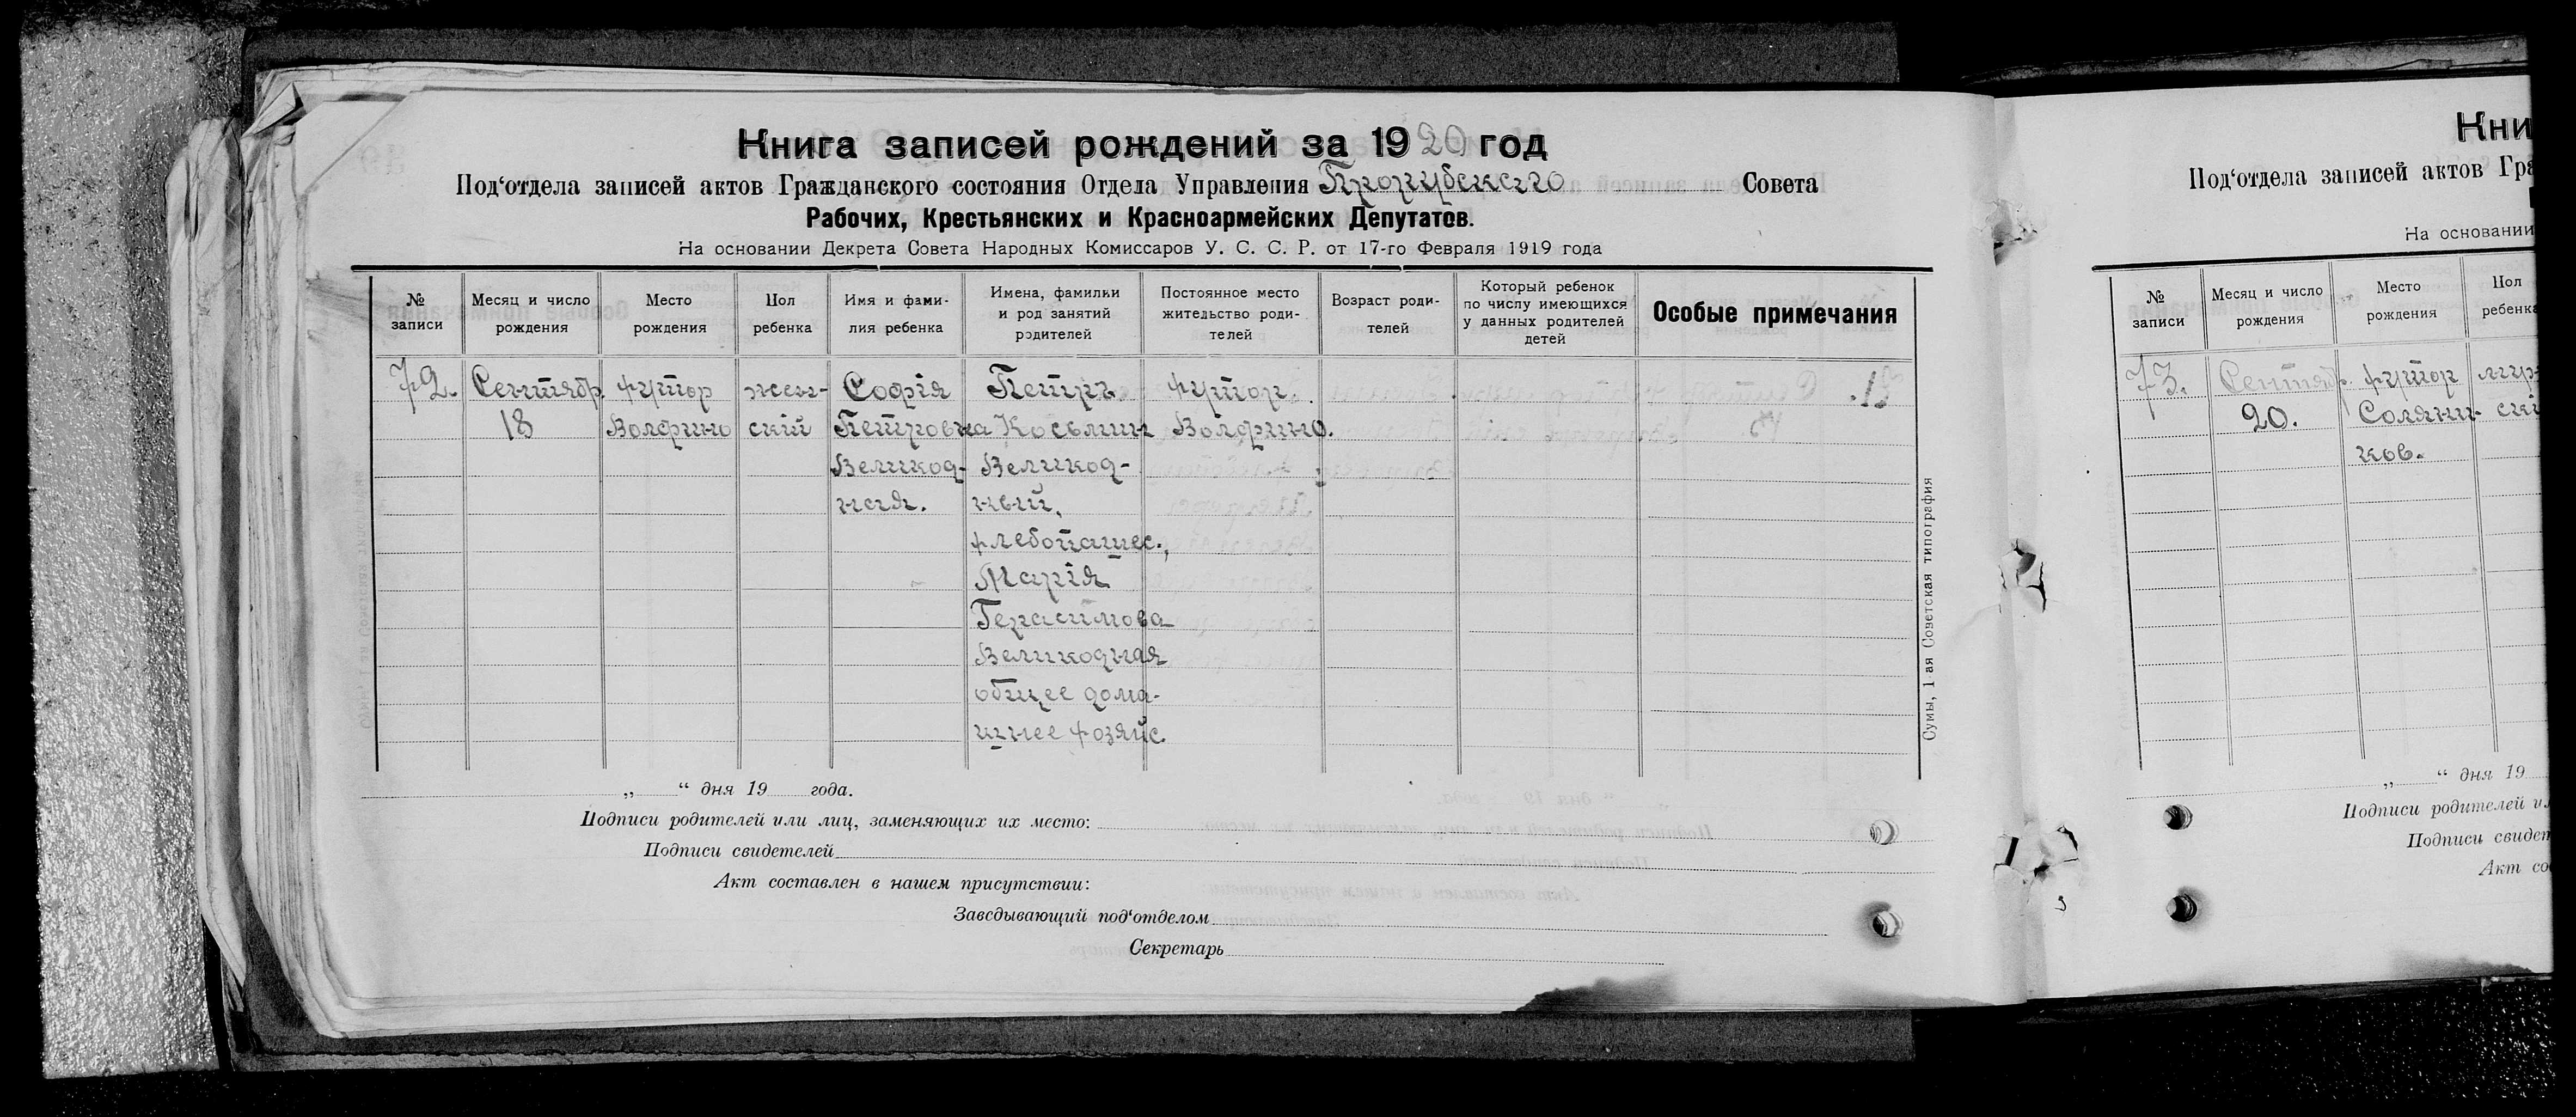 Книга записей рождений за 1920 год
Под‘отдела записей актов Гражданского состояния Отдела Управления Совета
Рабочих, Крестьянских и Красноармейских Депутатов.
На основании Декрета Совета Народных Комиссаров У. С. С. Р. от 17-го Февраля 1919 года
№ записи
Месяц и число рождения
Место рождения
Пол ребенка
Имя и фами-
лия ребенка
Имена, фамилии
и род занятий
родителей
Постоянное место
жительство роди-
телей
Возраст роди-
телей
Который ребенок
по числу имеющихся
у данных родителей
детей
Особые примечания
72.
Сентябр.
18
хутор
Волфино
жен-
скій
Софія
Петровна
Великод-
ная.
Петръ
Косьмин
Великод-
ный,
хлебопашес.,
Марія
Герасимова
Великодная
общее дома-
шнее хозяйс.
хутор.
Волфино.
„ “ дня 19 года.
Подписи родителей или лиц, заменяющих их место:
Подписи свидетелей
Акт составлен в нашем присутствии:
Заведывающий под‘отделом
Секретарь
Сумы, 1-ая Советская типография
Кни
Под‘отдела записей актов Гра
На основании
№ записи
Месяц и число рождения
Место рождения
Пол ребенка
73.
Сентябр.
20.
хутор
Соляни-
ков.
„ “ дня 19
Подписи родителей ил
Подписи свидет
Акт со